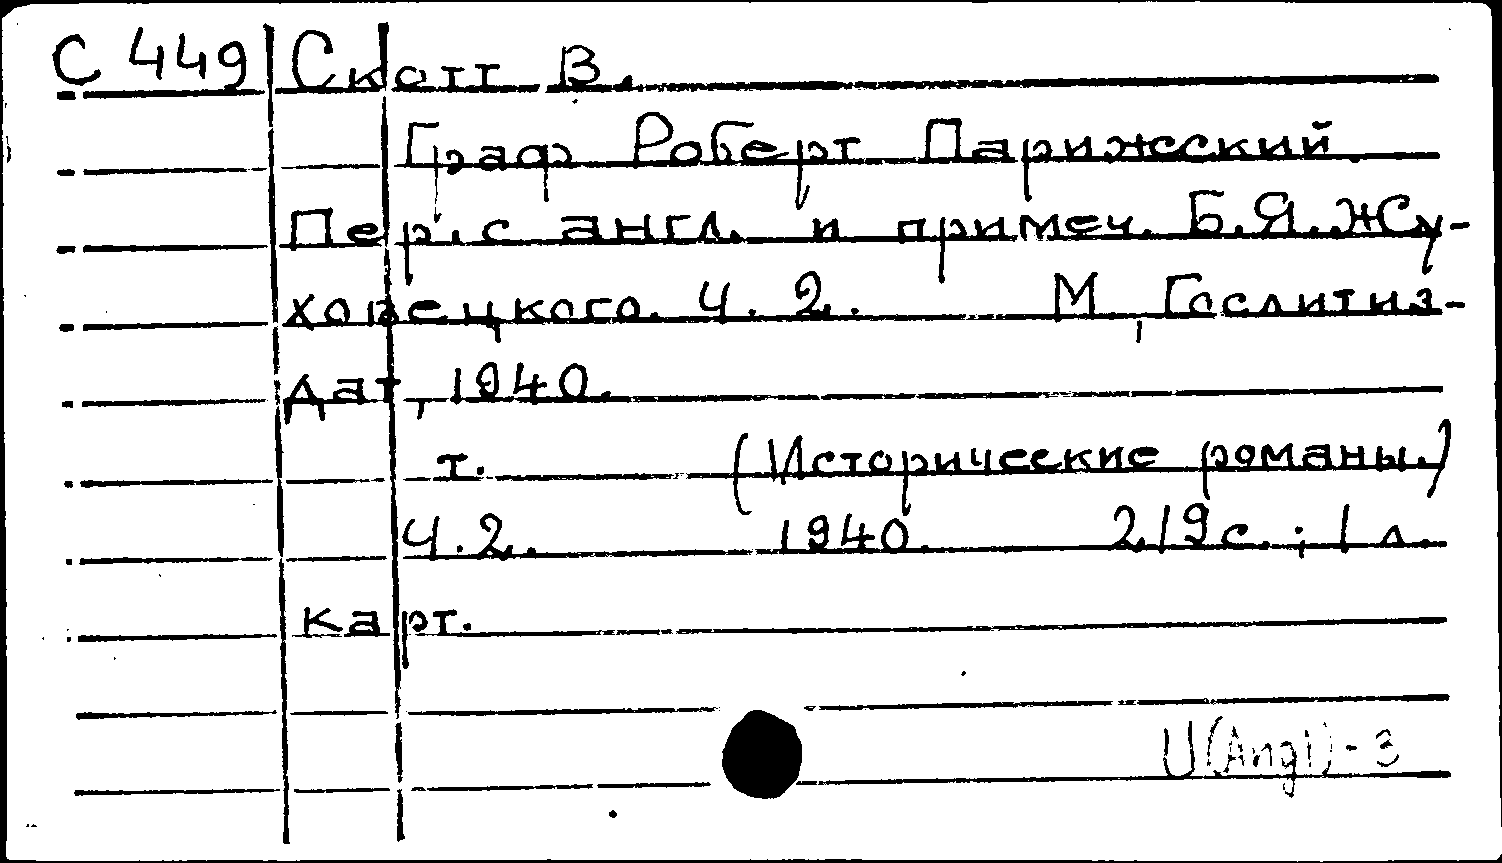 С 449 Скотт В.
Граф Роберт Парижский.
Пер. с англ. и примеч. Б.Я. Жу-
ховецкого. Ч. 2. М., Гослитиз-
дат, 1940.
т. (Исторические романы.)
Ч. 2. 1940. 219 с.; 1 л.
карт.
U(Angl)-3